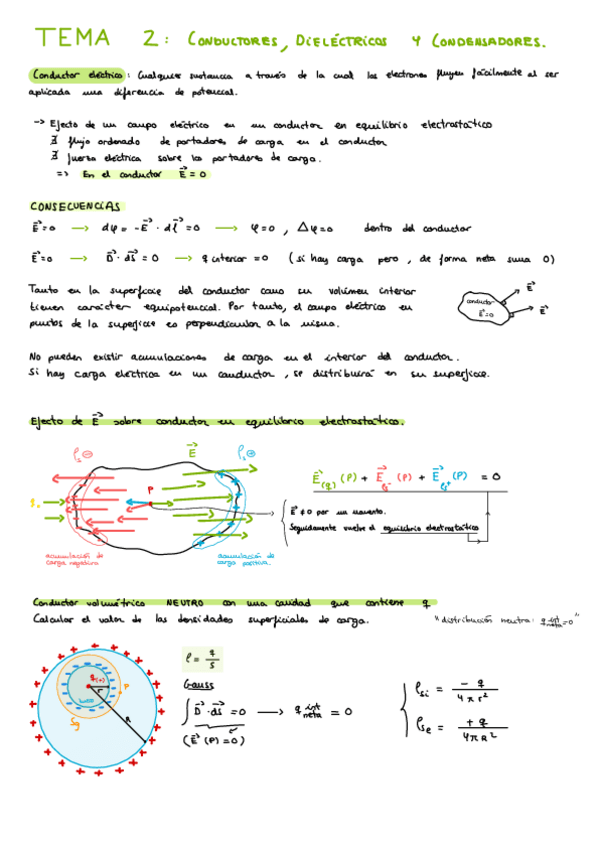 TEMA 2: CONDUCTORES, DIELÉCTRICOS Y CONDENSADORES.
Conductor eléctrico: Cualquier sustancia a través de la cual los electrones fluyen fácilmente al ser
aplicada una diferencia de potencial.
-> Efecto de un campo eléctrico en un conductor en equilibrio electrostático
∄ flujo ordenado de portadores de carga en el conductor
∄ fuerza eléctrica sobre los portadores de carga.
=> En el conductor E⃗ = 0
CONSECUENCIAS
E⃗ = 0 → dφ = -E⃗ · dl⃗ = 0 → φ = 0, Δφ = 0 dentro del conductor
E⃗ = 0 → D⃗ · ds⃗ = 0 → q interior = 0 (si hay carga pero, de forma neta suma 0)
Tanto en la superficie del conductor como su volumen interior
tienen carácter equipotencial. Por tanto, el campo eléctrico en
puntos de la superficie es perpendicular a la misma.
conductor
E⃗ = 0
E⃗
E⃗
No pueden existir acumulaciones de carga en el interior del conductor.
Si hay carga eléctrica en un conductor, se distribuirá en su superficie.
Efecto de E⃗ sobre conductor en equilibrio electrostático.
ρs⊖
E⃗
ρs⊕
P
acumulación de
carga negativa
acumulación de
carga positiva.
E⃗(q) (P) + E⃗q- (P) + E⃗q+ (P) = 0
E⃗ ≠ 0 por un momento.
Seguidamente vuelve el equilibrio electrostático
Conductor volumétrico NEUTRO con una cavidad que contiene q
Calcular el valor de las densidades superficiales de carga.
"distribución neutra: q int neta = 0"
q(+)
r
P
Sg
R
ρ = q/S
Gauss
∫ D⃗ · ds⃗ = 0 → q int neta = 0
(E⃗ (P) = 0)
ρsi = -q / 4πr²
ρse = +q / 4πR²